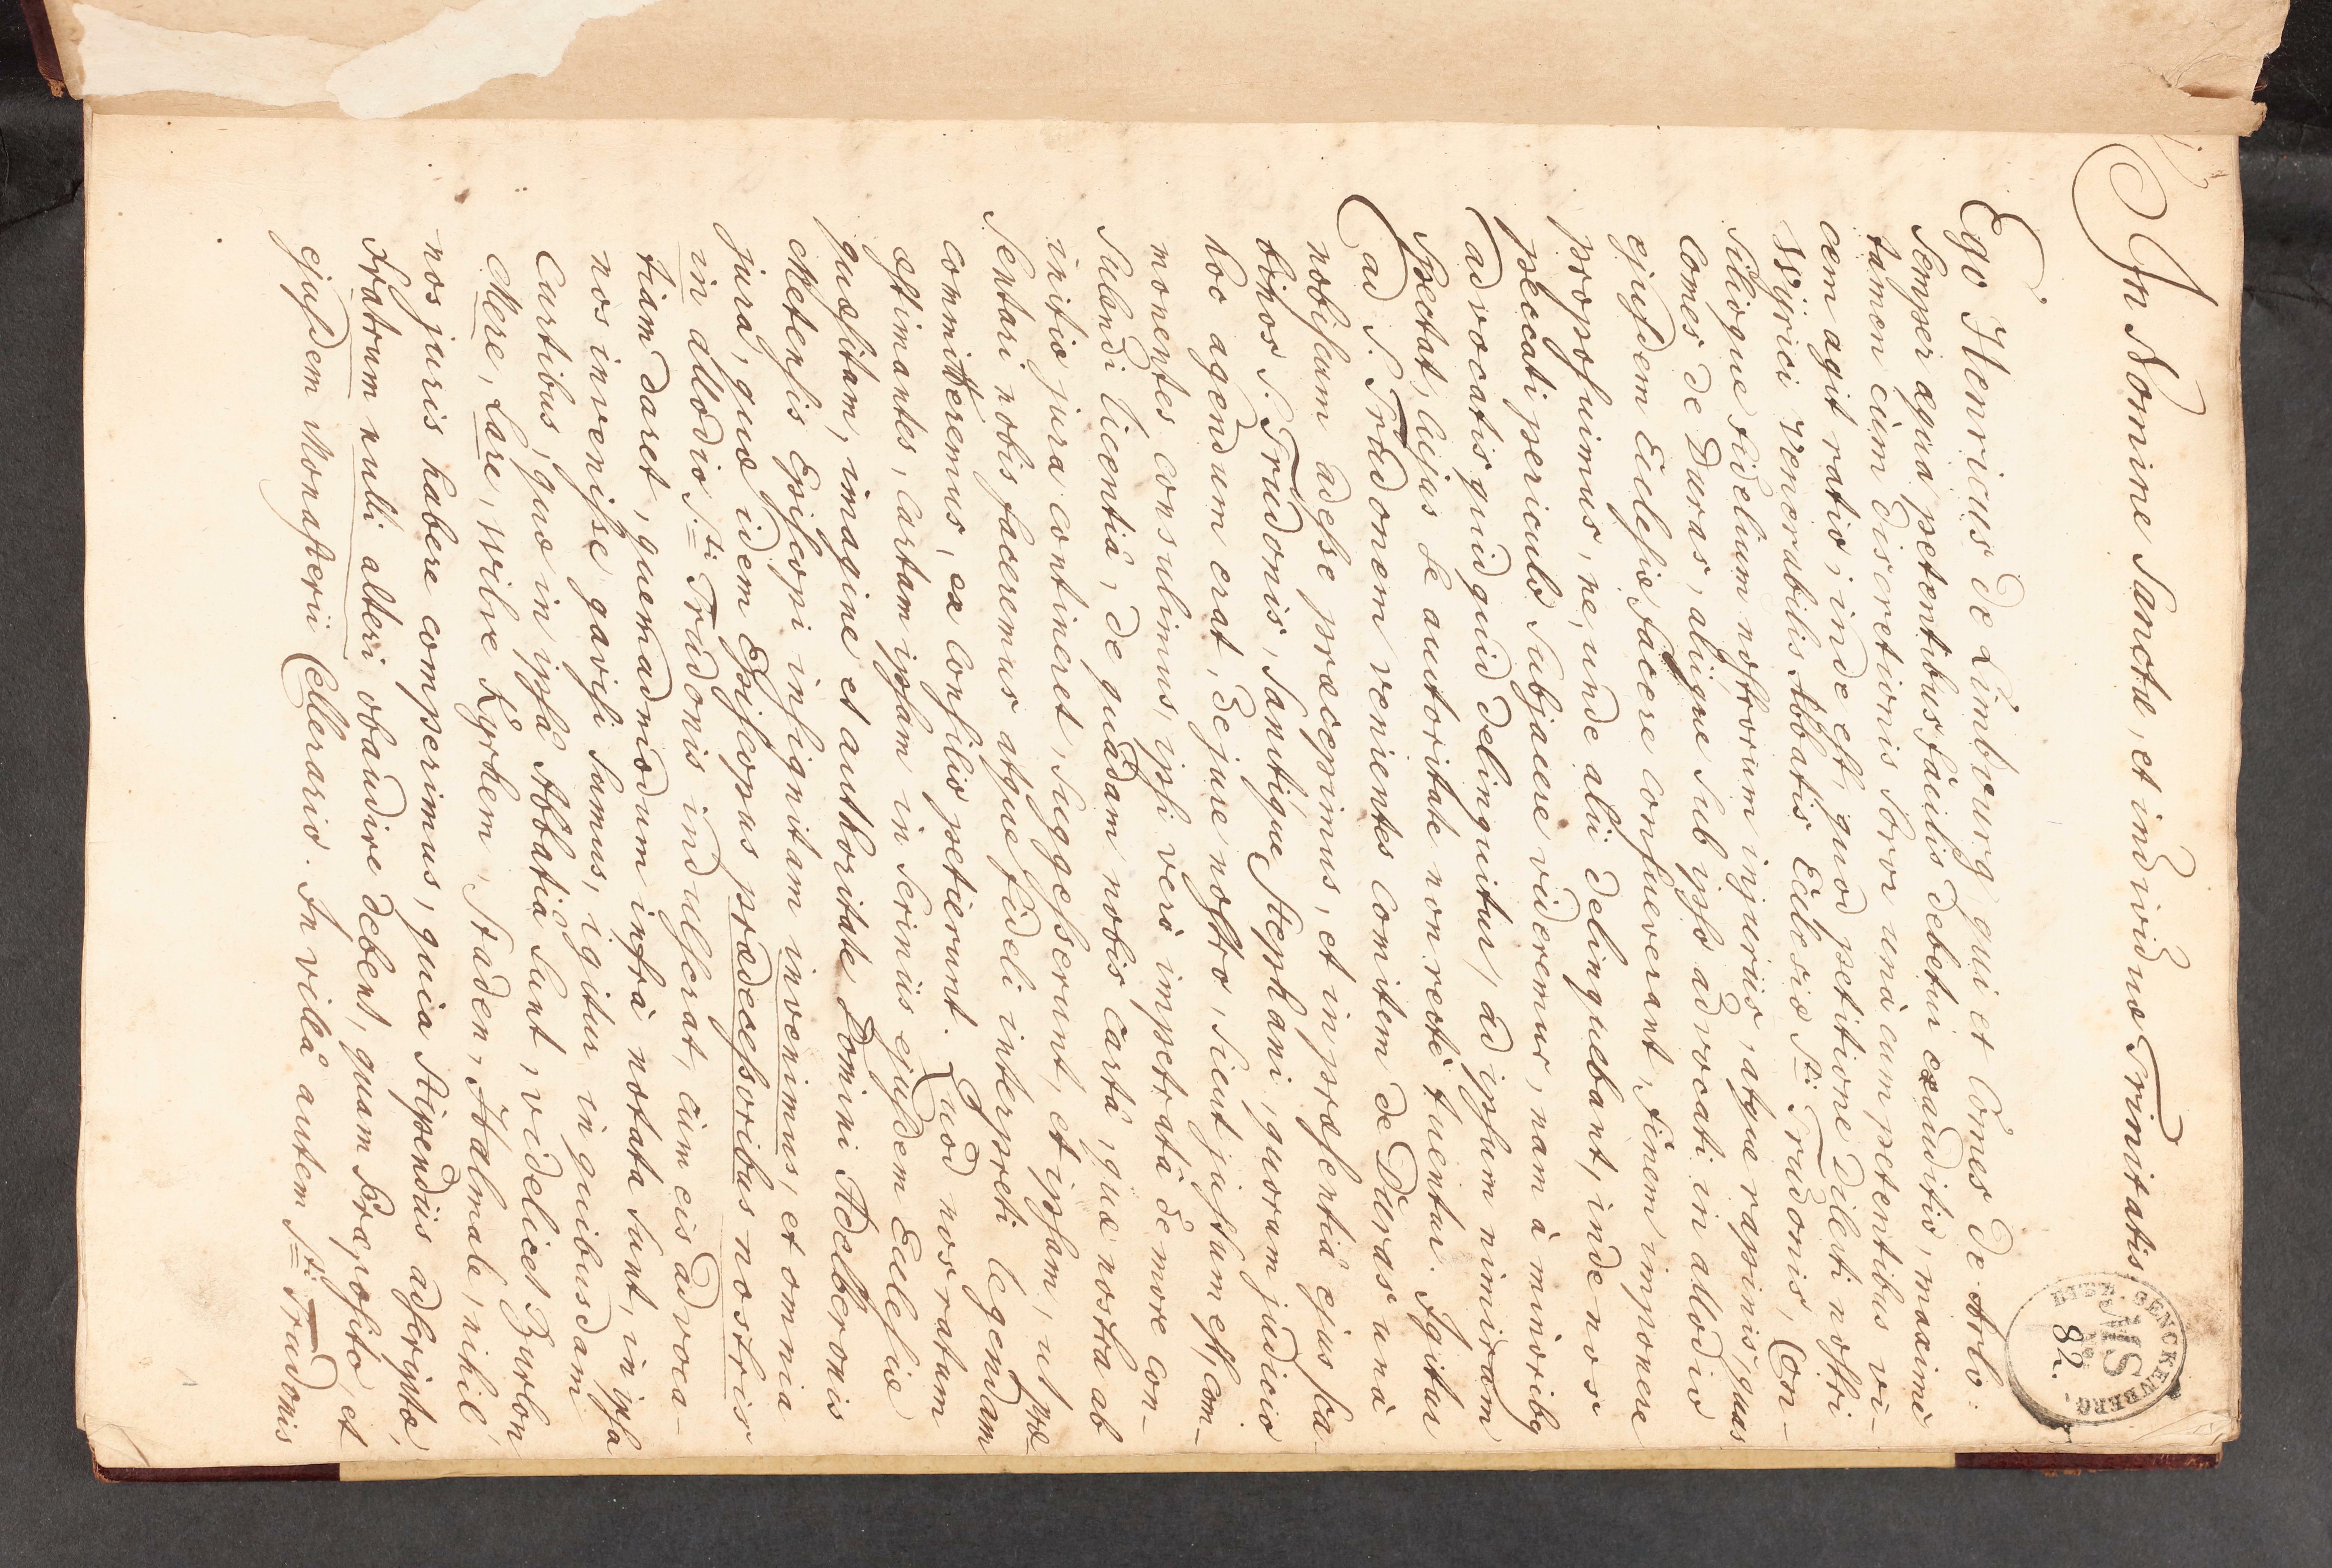 In Nomine Sanctæ, et individuæ Trinitatis
Ego Henricus de Limbourg qui et Comes de Arlo:
Semper æqua petentibus facilis debetur exauditio, maximè
tamen cùm discretionis soror unà cum petentibus vi-
cem agit ratio; inde est, quod petitione dilecti nostri
Wyrici venerabilis Abbatis Ecclesiæ Sti: Trudonis, Con-
silioque fidelium nostrorum injuriis, atque rapinis, quas
Comes de Duras, aliique sub ipso advocati in allodio
ejusdem Ecclesiæ facere consueverant, finem imponere
proposuimus, ne, unde alii delinquebant, inde nos
peccati periculo subjacere videremur, nam à minoribq
advocatis quidquid delinquitur, ad ipsum nimirum
spectat, cujus se autoritate non rectè tuentur. Igitur
ad S. Trudonem venientes Comitem de Duras unà
nobiscum adesse præcepimus, et in præsentiâ ejus sca-
binos S. Trudonis, Sanctique Stephani, quorum judicio
hoc agendum erat, de jure nostro, sicut justum est, com-
monentes consulimus, ipsi verò impetratâ de more con-
sulendi licentiâ, de quâdam nobis cartâ, quæ nostra ab
initio jura contineret, suggesserunt, et ipsam, ut præ-
sentari nobis faceremus atque fideli interpreti legendam
committeremus, ex Consilio petierunt. Quod nos ratum
æstimantes, Cartam ipsam in Scriniis ejusdem Ecclesiæ
quæsitam, imagine et authoritate Domini Adelberonis
Metensis Episcopi insignitam invenimus, et omnia
jura, quæ idem Episcopus prædecessoribus nostris
in allodio Sti: Trudonis indulserat, cùm eis advoca-
tiam daret, quemadmodum infrà notata sunt, in ipsa
nos invenisse gavisi sumus, igitur in quibusdam
Curtibus, quæ in ipsâ Abbatiâ sunt, videlicet Burlon
Mere, Lare, Wilre Kyrkem, Staden, Halmale, nihil
nos juris habere comperimus, quia Stipendiis adscriptæ,
Fratrum nulli alteri obaudire debent, quam Præposito, et
ejusdem Monasterii Cellerario. In villâ autem Sti: Trudonis
BIBL. GENCKENBERG
MS
No 82.